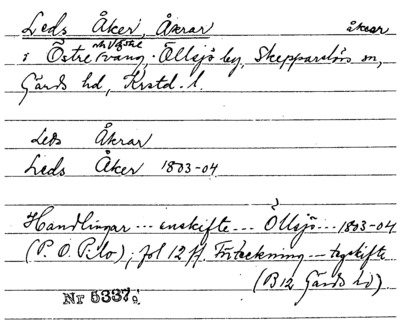 Leds Åker, Åkrar åkrar
i Östre vång, Öllsjö by, Skepparslövs sn,
Gärds hd, Krstd. l.
Leds Åkrar
Leds Åker 1803-04
Handlingar --- enskifte --- Öllsjö --- 1803-04
(P. O. Pilo); fol 12 ff. Förteckning --- tegskifte
(B12 Gärds hd)
Nr 5337